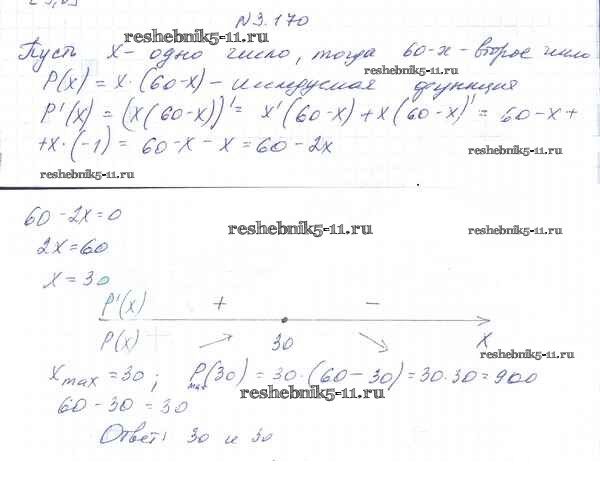 N3.170
reshebnik5-11.ru
Пусть x - одно число, тогда 60-x - второе число
reshebnik5-11.ru
P(x) = x · (60-x) - исследуемая функция
P'(x) = (x(60-x))' = x'(60-x) + x(60-x)' = 60-x+
+x·(-1) = 60-x-x = 60-2x
reshebnik5-11.ru
reshebnik5-11.ru
60-2x=0
reshebnik5-11.ru
reshebnik5-11.ru
2x=60
x=30
P'(x) + -
P(x) 30 x
reshebnik5-11.ru
x max = 30; P max (30) = 30·(60-30) = 30·30 = 900
reshebnik5-11.ru
60-30=30
Ответ: 30 и 30
reshebnik5-11.ru